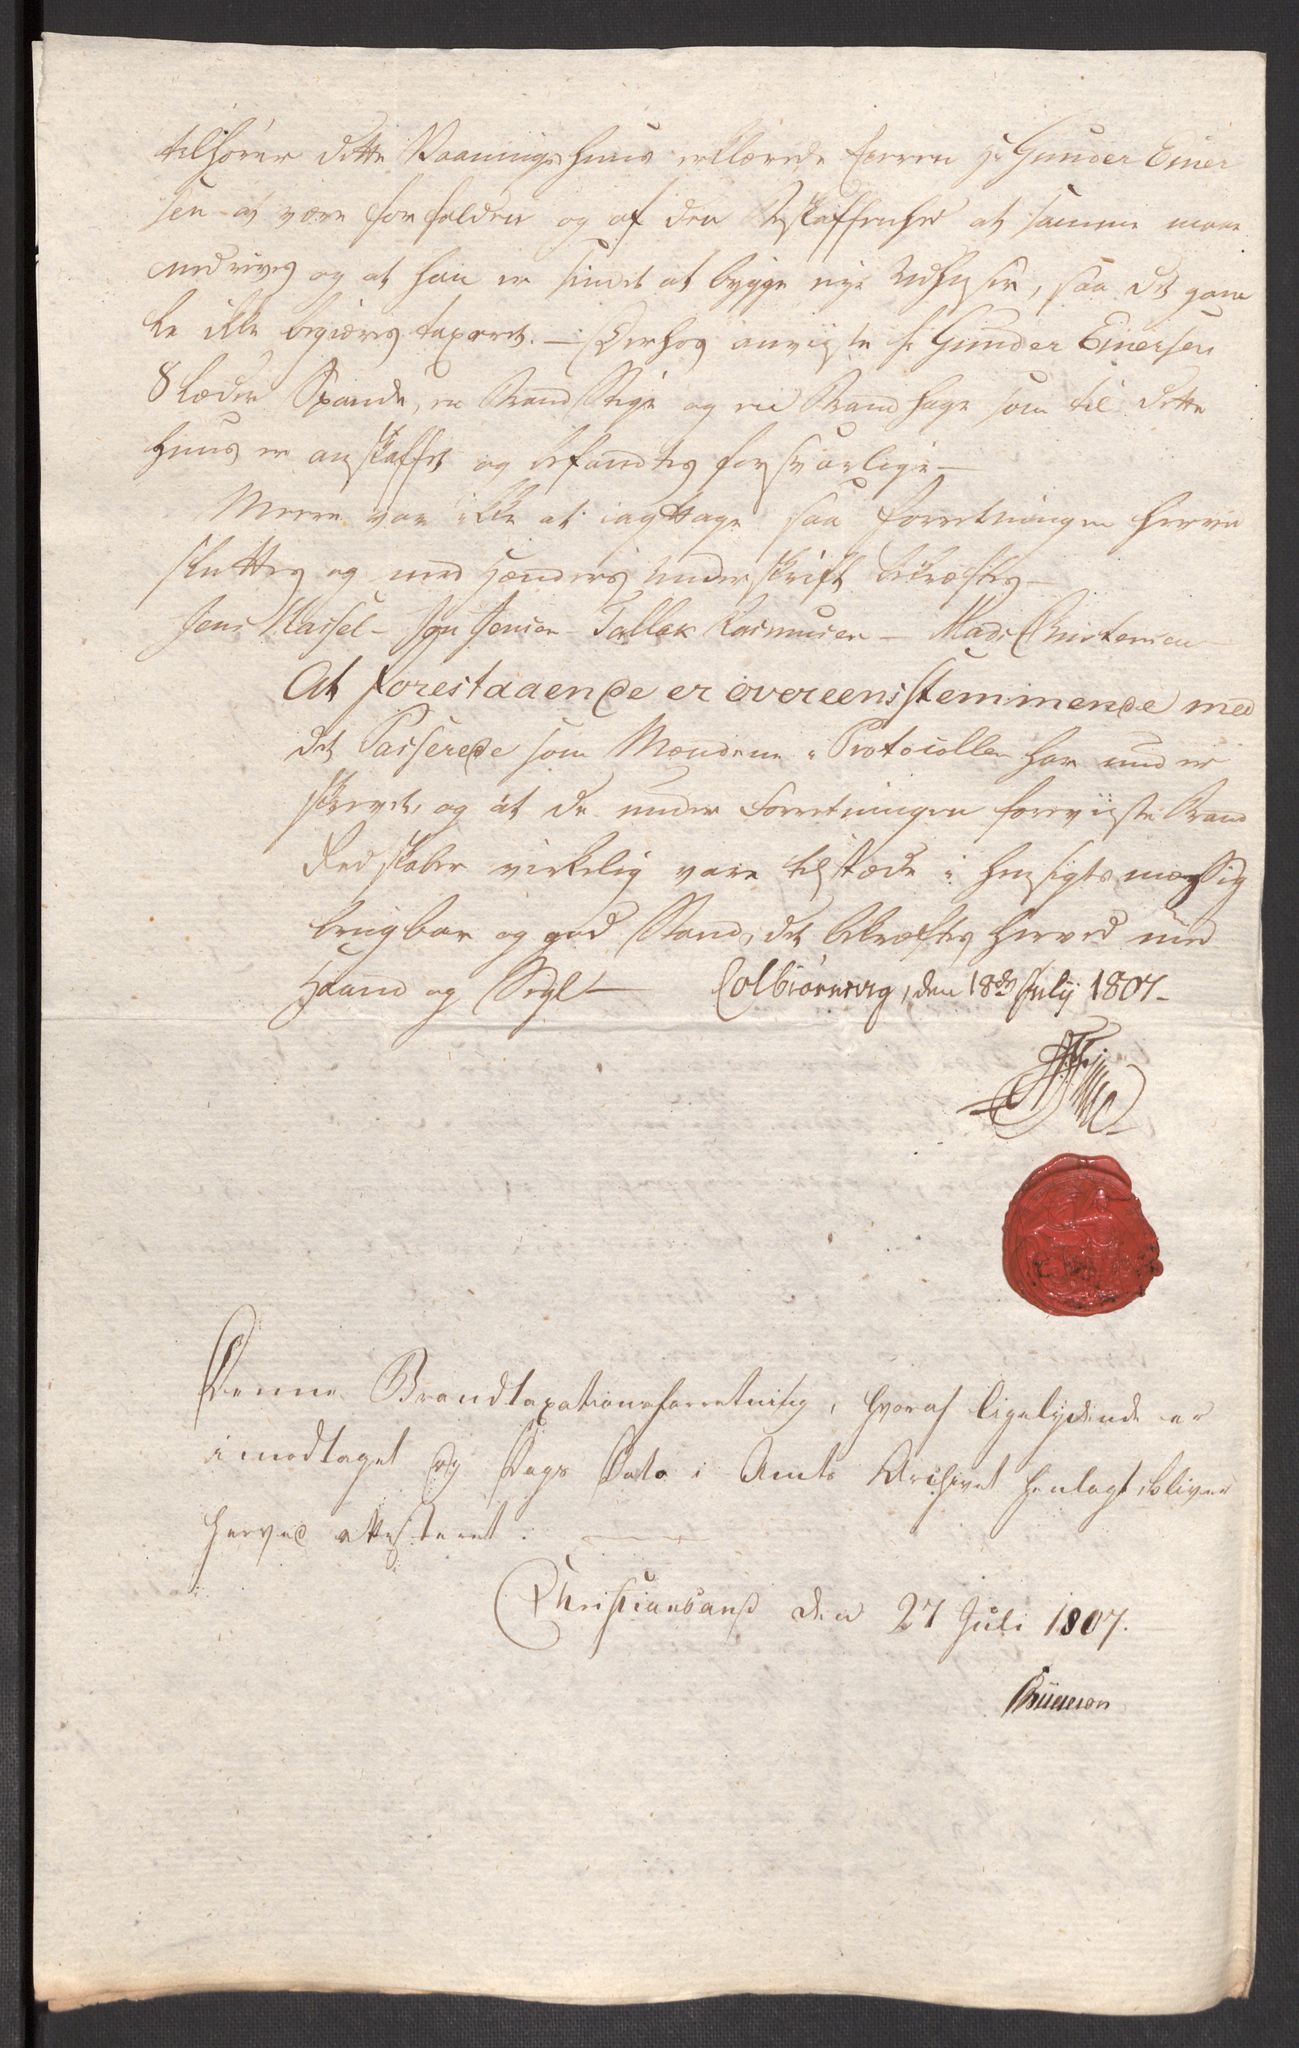 tilhører dette Vaaningshuus erklærede Eieren Hr Gunder Einer
sen at være forfalden og af den Beskaffenhed at samme maae
nedrives og at han er sindet at bygge nye Udhuser, saa det gam
le ikke begiæres taxeret. — Derhos anviiste Hr Gunder Einersen
8 Læder Spande, en Brand Stige og en Brand Hage som til dette
Huus er anskaffet og befandtes forsvarlige —
Meere var ikke at iagttage saa Forretningen herved
sluttes og med Hænders Underskrift bekræftes —
Jens Massel — Jens Jensen — Tallak Rasmusen — Mads Christensen —
At forestaaende er overeensstemmende med
det Passerede som Mændene i Protocollen har under
skrevet, og at de under Forretningen foreviiste Brand
Redskaber virkelig vare tilstæde i hensigtsmæssig
brugbar og god Stand, det bekræftes herved med
Haand og Segl — Colbiørnsvig, den 18de July 1807 —
Denne Brandtaxationsforretning, hvoraf ligelydende er
imodtaget og Dags Dato i Amts Archivet henlagt, bliver
herved attesteret.
Christiansand den 27 Juli 1807.